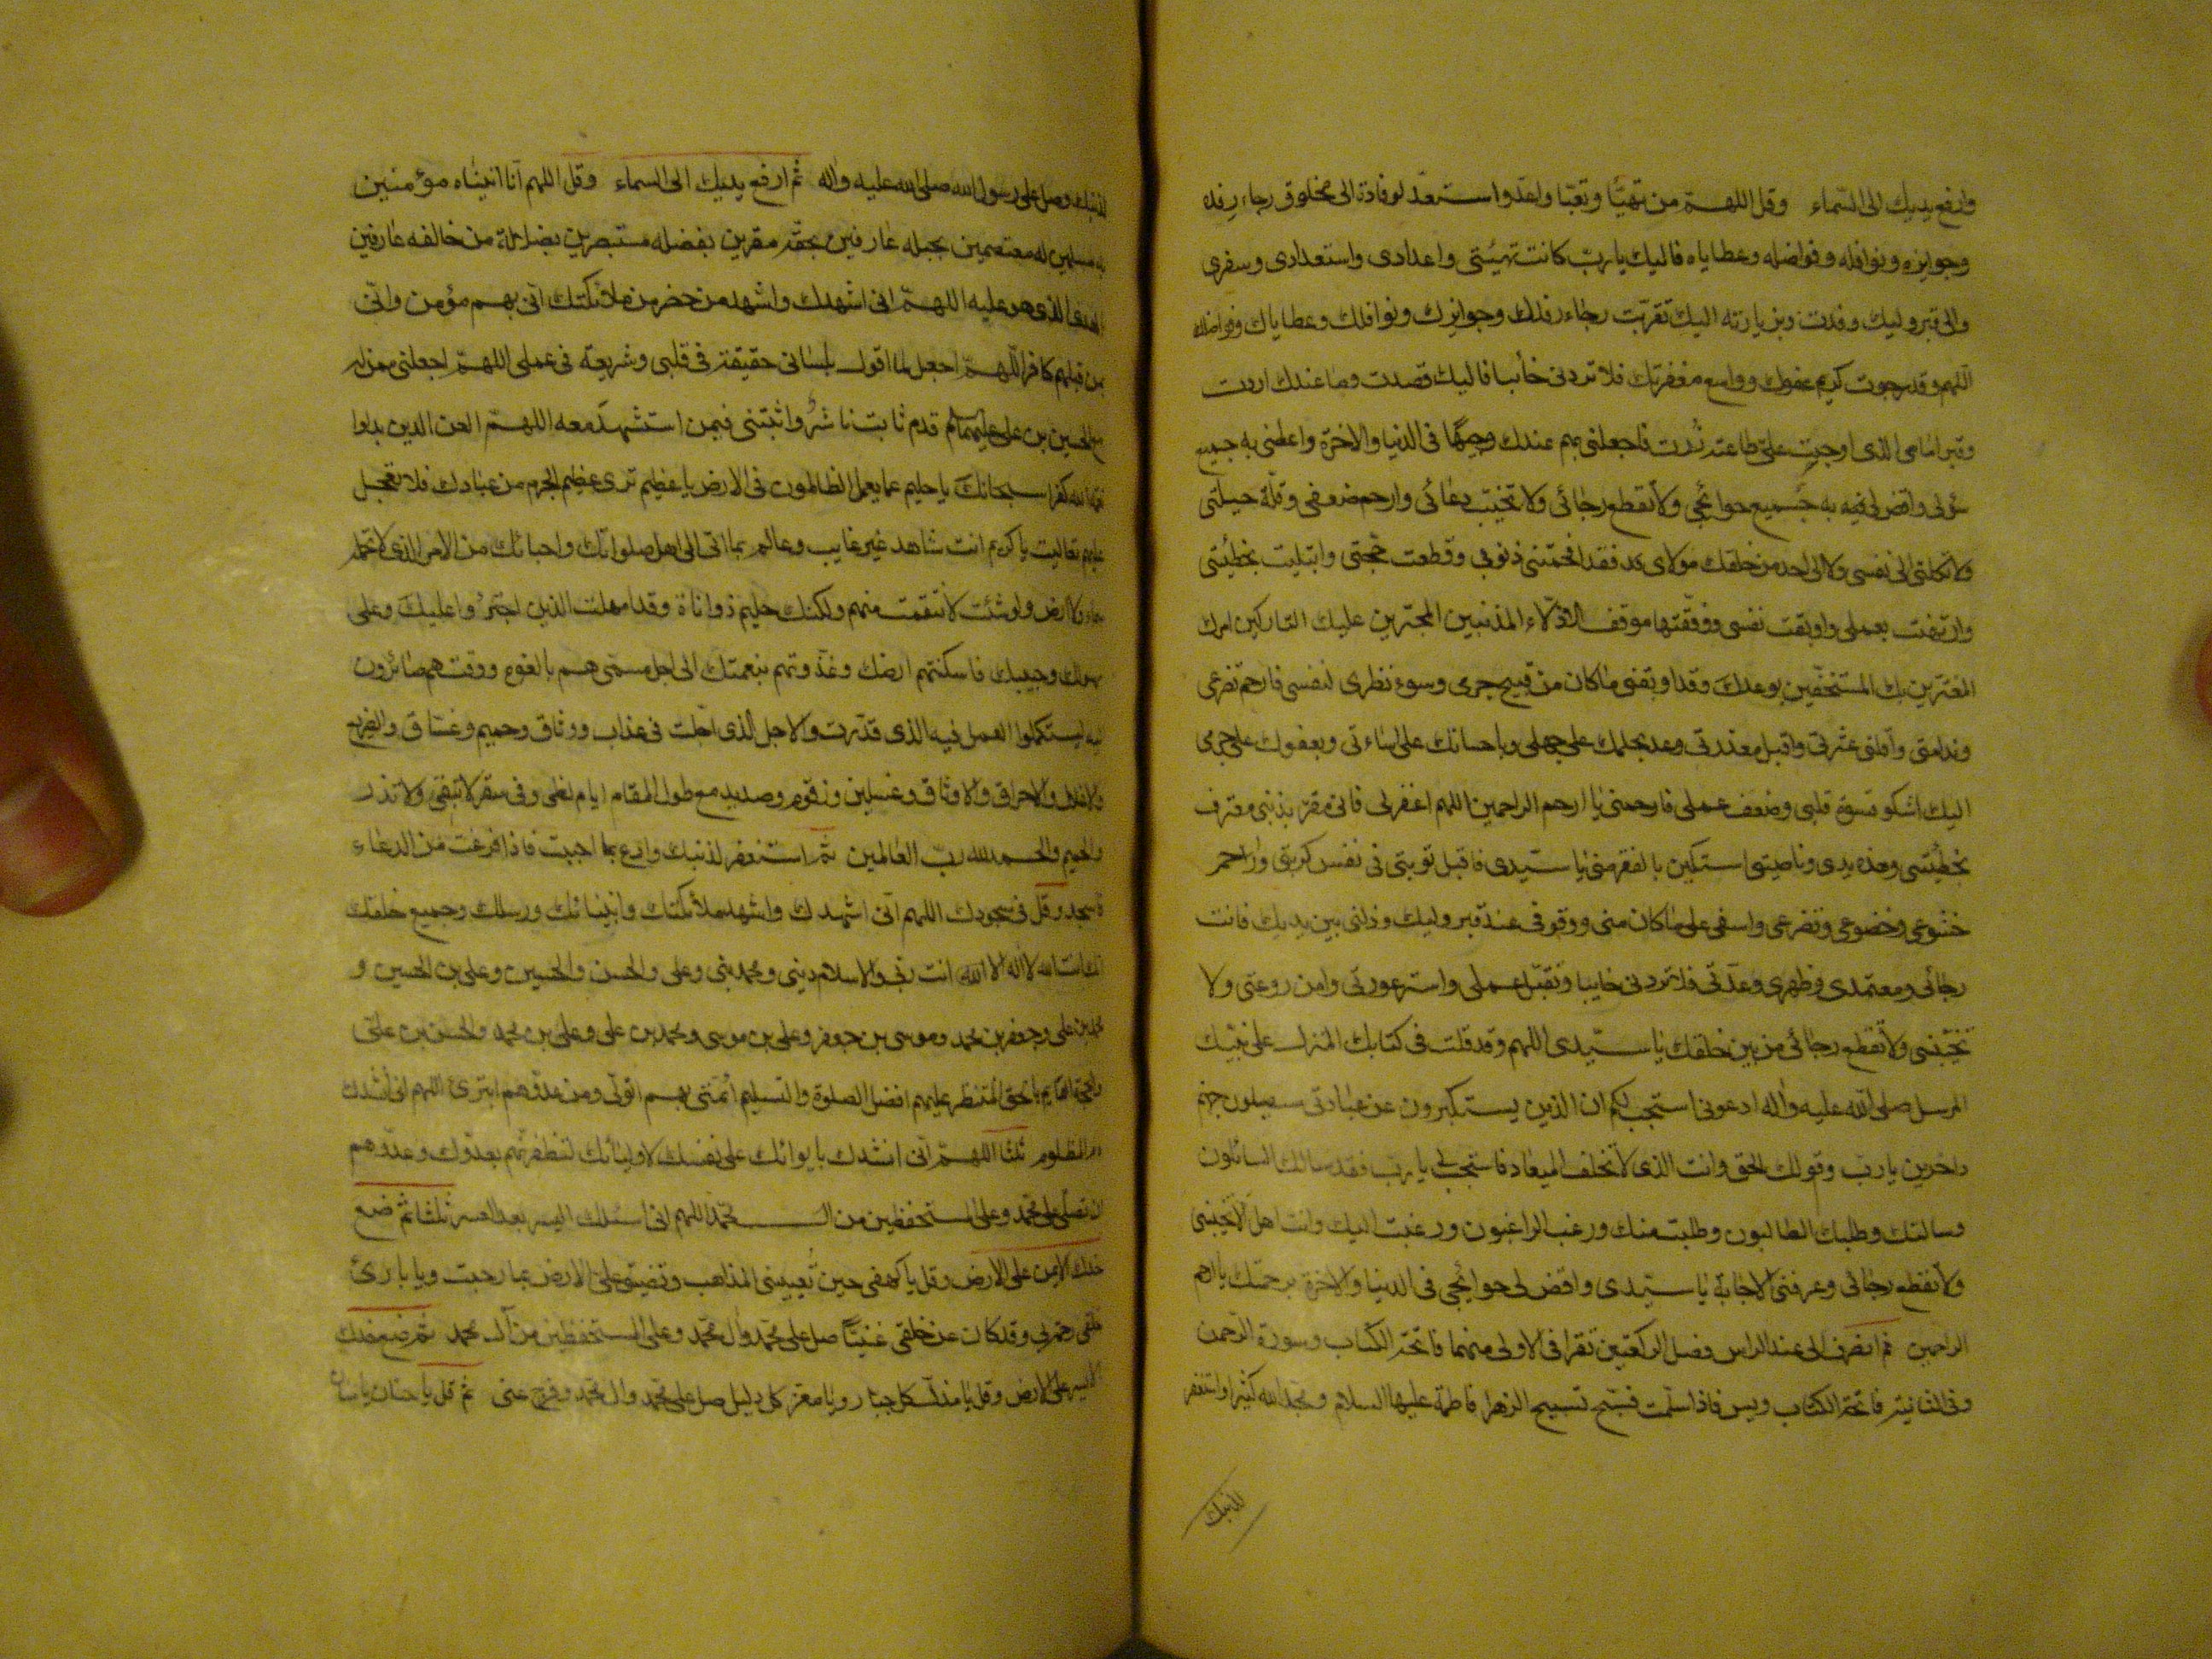 وارفع يديك الى السماء وقل اللهم من تهيّا وتعبّا واعدّ واستعدّ لوفادة الى مخلوق رجاء رفده
وجوايزه ونوافله وفواضله وعطاياه فاليك يا ربّ كانت تهيئتى واعدادى واستعدادى وسفرى
والى قبر وليك وفدت وبزيارته اليك تقرّبت رجاء رفدك وجوايزك ونوافلك وعطاياك وفواضلك
اللهم وقد رجوت كريم عفوك وواسع مغفرتك فلا تردنى خائبا فاليك قصدت وما عندك اردت
وقبر امامى الذى اوجبت علىّ طاعته زرت فاجعلنى بهم عندك وجيها فى الدنيا والاخرة واعطنى به جميع
سؤلى واقض لى فيه به جميع حوائجى ولا تقطع رجائى ولا تخيّب دعائى وارحم ضعفى وقلّة حيلتى
ولا تكلنى الى نفسى ولا الى احد من خلقك مولاى قد فقد افحمتنى ذنوبى وقطعت حجتى وابتليت بخطيئتى
وارتهنت بعملى واوبقت نفسى ووقفتها موقف الاذلّاء المذنبين المجترين عليك التاركين امرك
المغترين بك المستخفين بوعدك وقد اوبقنى ما كان من قبيح جرمى وسوء نظرى لنفسى فارحم تضرعى
وندامتى واقلنى عثرتى واقبل معذرتى وعد بحلمك على جهلى وباحسانك على اساءتى وبعفوك على جرمى
اليك اشكو قسوة قلبى وضعف عملى فارحمنى يا ارحم الراحمين اللهم اغفر لى فانى مقرّ بذنبى معترف
بخطيئتى وهذه يدى وناصيتى استكين بالفقر منى يا سيّدى فاقبل توبتى ونفس كربتى وارحم
خشوعى وخضوعى وتضرعى واسفى على ما كان منى ووقوفى عند قبر وليك وذلى بين يديك فانت
رجائى ومعتمدى وظهرى وعدّتى فلا تردنى خايبا وتقبّل عملى واستر عورتى وامن روعتى ولا
تخيّبنى ولا تقطع رجائى من بين خلقك يا سيّدى اللهم وقد قلت فى كتابك المنزل على نبيّك
المرسل صلى الله عليه واله ادعونى استجب لكم ان الذين يستكبرون عن عبادتى سيدخلون جهنم
داخرين يا ربّ وقولك الحق وانت الذى لا تخلف الميعاد فاستجب لى يا ربّ فقد سالك السائلون
وسالتك وطلبك الطالبون وطلبت منك ورغب الراغبون ورغبت اليك وانت اهل ان لا تخيبنى
ولا تقطع رجائى وعرفنى الاجابة يا سيّدى واقض لى حوائجى فى الدنيا والاخرة برحمتك يا ارحم
الراحمين ثم انصرف الى عند الراس فصل الركعتين تقرا فى الاولى منهما فاتحة الكتاب وسورة الرحمن
وفى الثانية فاتحة الكتاب ويس فاذا سلمت فسبّح تسبيح الزهرا فاطمة عليها السلام ومجّد الله كثيرا واستغفر
لذنبك
لذنبك وصل على رسول الله صلى الله عليه واله ثم ارفع يديك الى السماء وقل اللهم انا اتيناه مؤمنين
به مسلمين له معتصمين بحبله عارفين بحقّه مقرين بفضله مستبصرين بضلالة من خالفه عارفين
بالهدى الذى هو عليه اللهمّ انى اشهدك واشهد من حضر من ملائكتك انّى بهم مؤمن وانّى
بمن قتلهم كافر اللهمّ اجعل لما اقول بلسانى حقيقة فى قلبى وشريعة فى عملى اللهمّ اجعلنى ممن له
مع الحسين بن على عليهما السلم قدم ثابت واثبتنى فيمن استشهد معه اللهمّ العن الذين بدلوا
نعمة الله كفرا سبحانك يا حليم عما يعمل الظالمون فى الارض يا عظيم ترى عظيم الجرم من عبادك فلا تعجل
عليهم تعاليت يا كريم انت شاهد غير غايب وعالم بما اتى الى اهل صلواتك واحبائك من الامر الذى لا تحمله
سماء ولا ارض ولو شئت لانتقمت منهم ولكنك حليم ذو اناة وقد امهلت الذين اجترؤا عليك وعلى
رسولك وحبيبك فاسكنتهم ارضك وغذوتهم بنعمتك الى اجل مسمّى هم بالغوه ووقت هم صائرون
اليه ليستكملوا العمل فيه الذى قدّرت والاجل الذى اجّلت فى عذاب ووثاق وحميم وغسّاق والضريع
والاغلال والاحراق والاوثاق وغسلين وزقوم وصديد مع طول المقام ايام لظى وفى سقر لا تبقى ولا تذر
والحميم والحمد لله ربّ العالمين ثمّ استغفر لذنبك وادع بما احببت فاذا فرغت من الدعاء
فاسجد وقل فى سجودك اللهم انّى اشهدك واشهد ملائكتك وانبيائك ورسلك وجميع خلقك
انك انت الله لا اله الا الله انت ربى والاسلام دينى ومحمد نبى وعلى والحسن والحسين وعلى بن الحسين و
محمد بن على وجعفر بن محمد وموسى بن جعفر وعلى بن موسى ومحمد بن على وعلى بن محمد والحسن بن على
والحجة القايم بالحق المنتظر عليهم افضل الصلوة والتسليم ائمّتى بهم اتولّى ومن عدوّهم اتبرئ اللهم انى انشدك
دم المظلوم ثلثا اللهمّ انّى انشدك بايوائك على نفسك لاوليائك لتظفرنّهم بعدوّك وعدوّهم
ان تصلّى على محمد وعلى المستحفظين من ال محمّد اللهم انى اسئلك اليسر بعد العسر ثلثا ثم ضع
خدك الايمن على الارض وقل يا كهفى حين تعيينى المذاهب وتضيق علىّ الارض بما رحبت ويا بارئ
خلقى رحمة لى وقد كان عن خلقى غنيّا صل على محمّد وال محمّد وعلى المستحفظين من آل محمد ثمّ ضع خدك
الايسر على الارض وقل يا مذلّ كل جبّار ويا معز كل ذليل صل على محمّد وال محمّد وفرّج عنى ثم قل يا حنان يا منان